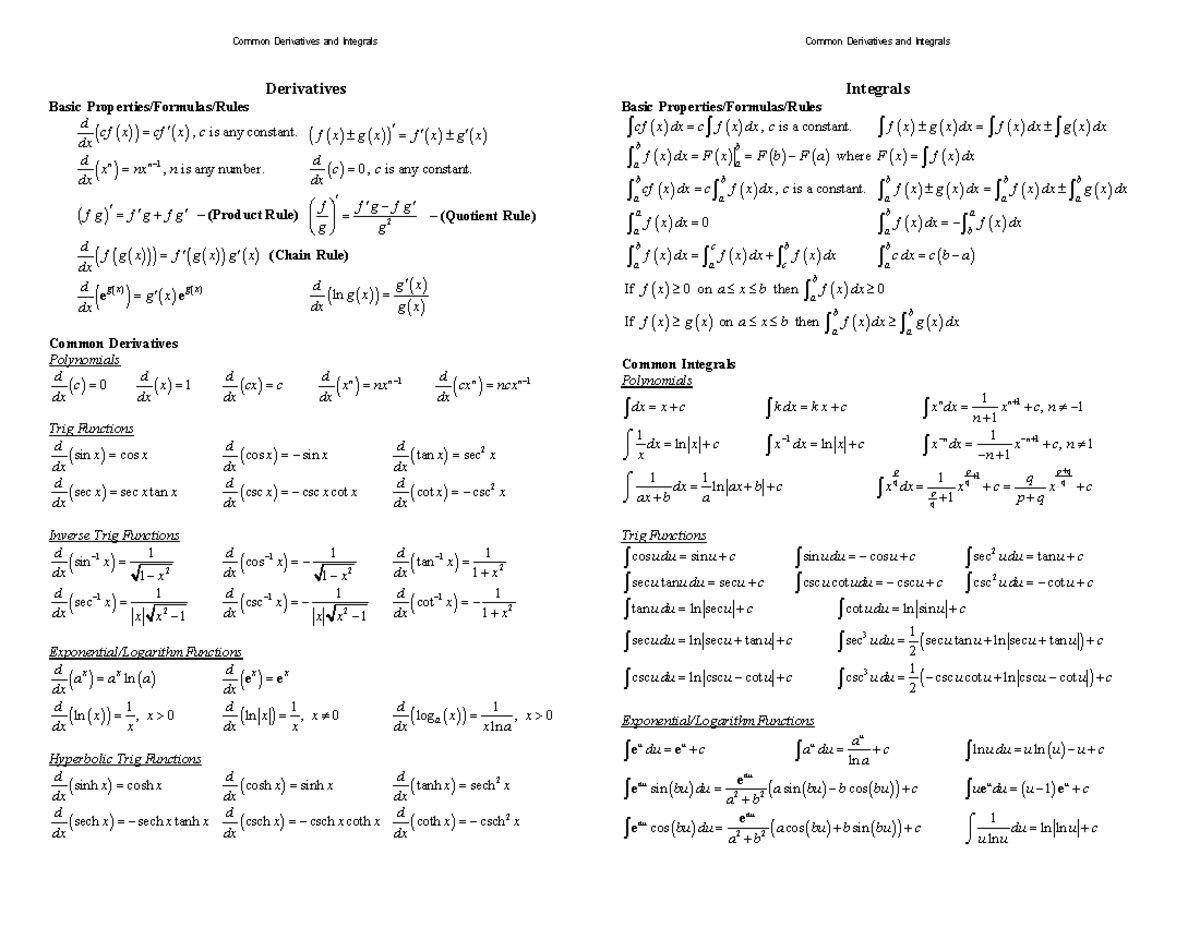 Common Derivatives and Integrals
Derivatives
Basic Properties/Formulas/Rules
d/dx (cf(x)) = cf′(x), c is any constant. (f(x) ± g(x))′ = f′(x) ± g′(x)
d/dx (xⁿ) = nxⁿ⁻¹, n is any number. d/dx (c) = 0, c is any constant.
(f g)′ = f′g + f g′ – (Product Rule) (f/g)′ = (f′g – f g′)/g² – (Quotient Rule)
d/dx (f(g(x))) = f′(g(x)) g′(x) (Chain Rule)
d/dx (e^g(x)) = g′(x) e^g(x) d/dx (ln g(x)) = g′(x)/g(x)
Common Derivatives
Polynomials
d/dx (c) = 0 d/dx (x) = 1 d/dx (cx) = c d/dx (xⁿ) = nxⁿ⁻¹ d/dx (cxⁿ) = ncxⁿ⁻¹
Trig Functions
d/dx (sin x) = cos x d/dx (cos x) = – sin x d/dx (tan x) = sec² x
d/dx (sec x) = sec x tan x d/dx (csc x) = – csc x cot x d/dx (cot x) = – csc² x
Inverse Trig Functions
d/dx (sin⁻¹ x) = 1/√(1 – x²) d/dx (cos⁻¹ x) = – 1/√(1 – x²) d/dx (tan⁻¹ x) = 1/(1 + x²)
d/dx (sec⁻¹ x) = 1/(|x|√(x² – 1)) d/dx (csc⁻¹ x) = – 1/(|x|√(x² – 1)) d/dx (cot⁻¹ x) = – 1/(1 + x²)
Exponential/Logarithm Functions
d/dx (aˣ) = aˣ ln(a) d/dx (eˣ) = eˣ
d/dx (ln(x)) = 1/x, x > 0 d/dx (ln|x|) = 1/x, x ≠ 0 d/dx (logₐ(x)) = 1/(x ln a), x > 0
Hyperbolic Trig Functions
d/dx (sinh x) = cosh x d/dx (cosh x) = sinh x d/dx (tanh x) = sech² x
d/dx (sech x) = – sech x tanh x d/dx (csch x) = – csch x coth x d/dx (coth x) = – csch² x
Common Derivatives and Integrals
Integrals
Basic Properties/Formulas/Rules
∫cf(x)dx = c∫f(x)dx, c is a constant. ∫f(x) ± g(x)dx = ∫f(x)dx ± ∫g(x)dx
∫_a^b f(x)dx = F(x)|_a^b = F(b) – F(a) where F(x) = ∫f(x)dx
∫_a^b cf(x)dx = c∫_a^b f(x)dx, c is a constant. ∫_a^b f(x) ± g(x)dx = ∫_a^b f(x)dx ± ∫_a^b g(x)dx
∫_a^a f(x)dx = 0 ∫_a^b f(x)dx = –∫_b^a f(x)dx
∫_a^b f(x)dx = ∫_a^c f(x)dx + ∫_c^b f(x)dx ∫_a^b c dx = c(b – a)
If f(x) ≥ 0 on a ≤ x ≤ b then ∫_a^b f(x)dx ≥ 0
If f(x) ≥ g(x) on a ≤ x ≤ b then ∫_a^b f(x)dx ≥ ∫_a^b g(x)dx
Common Integrals
Polynomials
∫dx = x + c ∫k dx = k x + c ∫xⁿdx = 1/(n+1) xⁿ⁺¹ + c, n ≠ –1
∫1/x dx = ln|x| + c ∫x⁻¹ dx = ln|x| + c ∫x⁻ⁿdx = 1/(–n+1) x⁻ⁿ⁺¹ + c, n ≠ 1
∫1/(ax+b) dx = 1/a ln|ax+b| + c ∫x^(p/q) dx = 1/(p/q + 1) x^(p/q + 1) + c = q/(p+q) x^((p+q)/q) + c
Trig Functions
∫cos u du = sin u + c ∫sin u du = – cos u + c ∫sec² u du = tan u + c
∫sec u tan u du = sec u + c ∫csc u cot u du = – csc u + c ∫csc² u du = – cot u + c
∫tan u du = ln|sec u| + c ∫cot u du = ln|sin u| + c
∫sec u du = ln|sec u + tan u| + c ∫sec³ u du = 1/2 (sec u tan u + ln|sec u + tan u|) + c
∫csc u du = ln|csc u – cot u| + c ∫csc³ u du = 1/2 (– csc u cot u + ln|csc u – cot u|) + c
Exponential/Logarithm Functions
∫eᵘ du = eᵘ + c ∫aᵘ du = aᵘ/ln a + c ∫ln u du = u ln(u) – u + c
∫e^(au) sin(bu)du = e^(au)/(a² + b²) (a sin(bu) – b cos(bu)) + c ∫ueᵘ du = (u – 1)eᵘ + c
∫e^(au) cos(bu)du = e^(au)/(a² + b²) (a cos(bu) + b sin(bu)) + c ∫1/(u ln u) du = ln|ln u| + c